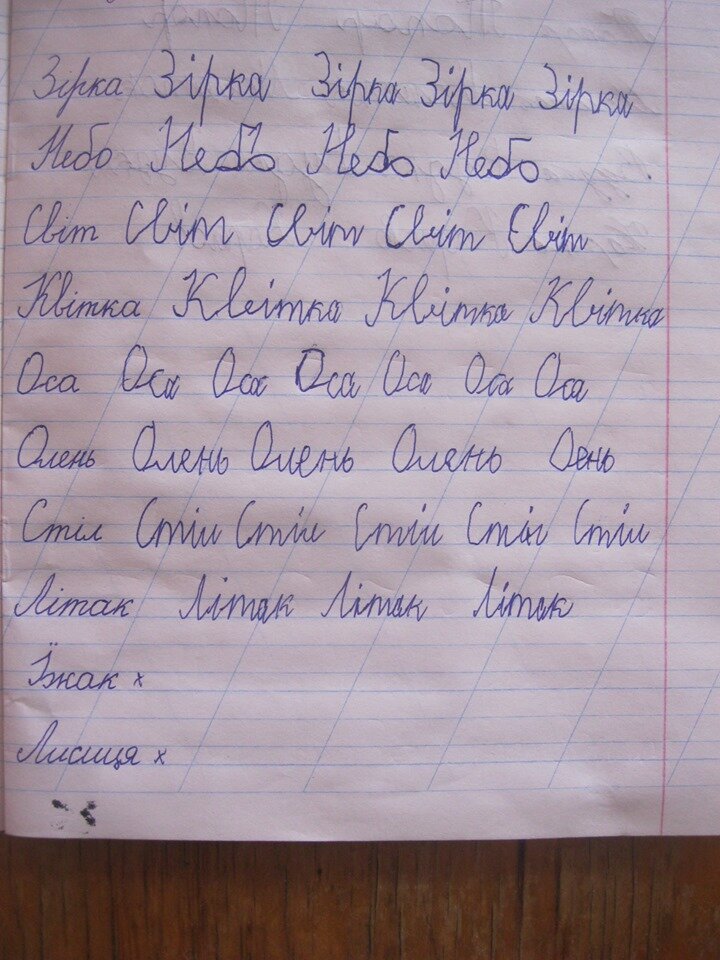 Зірка Зірка Зірка Зірка Зірка
Небо Небо Небо Небо
Світ Світ Світ Світ Світ
Квітка Квітка Квітка Квітка
Оса Оса Оса Оса Оса Оса Оса
Олень Олень Олень Олень Оень
Стіл Стіл Стіл Стіл Стіл Стіл
Літак Літак Літак Літак
Їжак х
Лисиця х